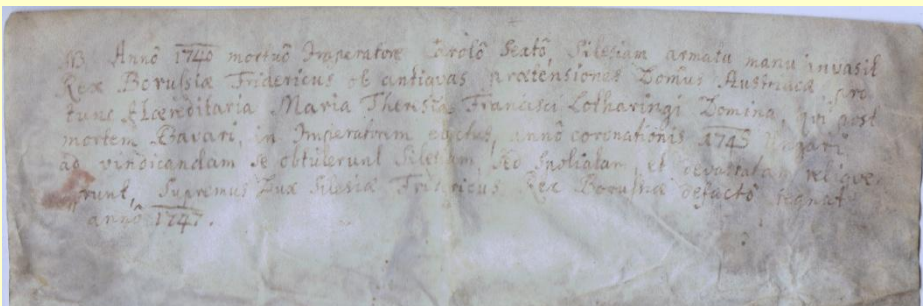 NB. Annô 1740 mortuô Imperatore Carolô Sextô, Silesiam armatu manu invasit
Rex Borussiæ Fridericus ob antiquas prætensiones Domus Austriacæ pro
tunc Hæreditaria Maria Theresia Francisci Lotharingi Domina, qui post
mortem Bavari, in Imperatorem electus, annô coronationis 1745 Ungari
ad vindicandam se obtulerunt Silesiam, sed spoliatam et devastatam relique
runt, Supremus Dux Silesiæ Fridericus Rex Borussiæ defactô regnat
annô 1747.